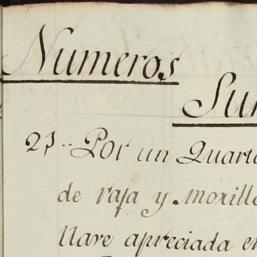 Numeros
Sum
23.. Por un Quarto
de raja y morillo
llave apreciada en